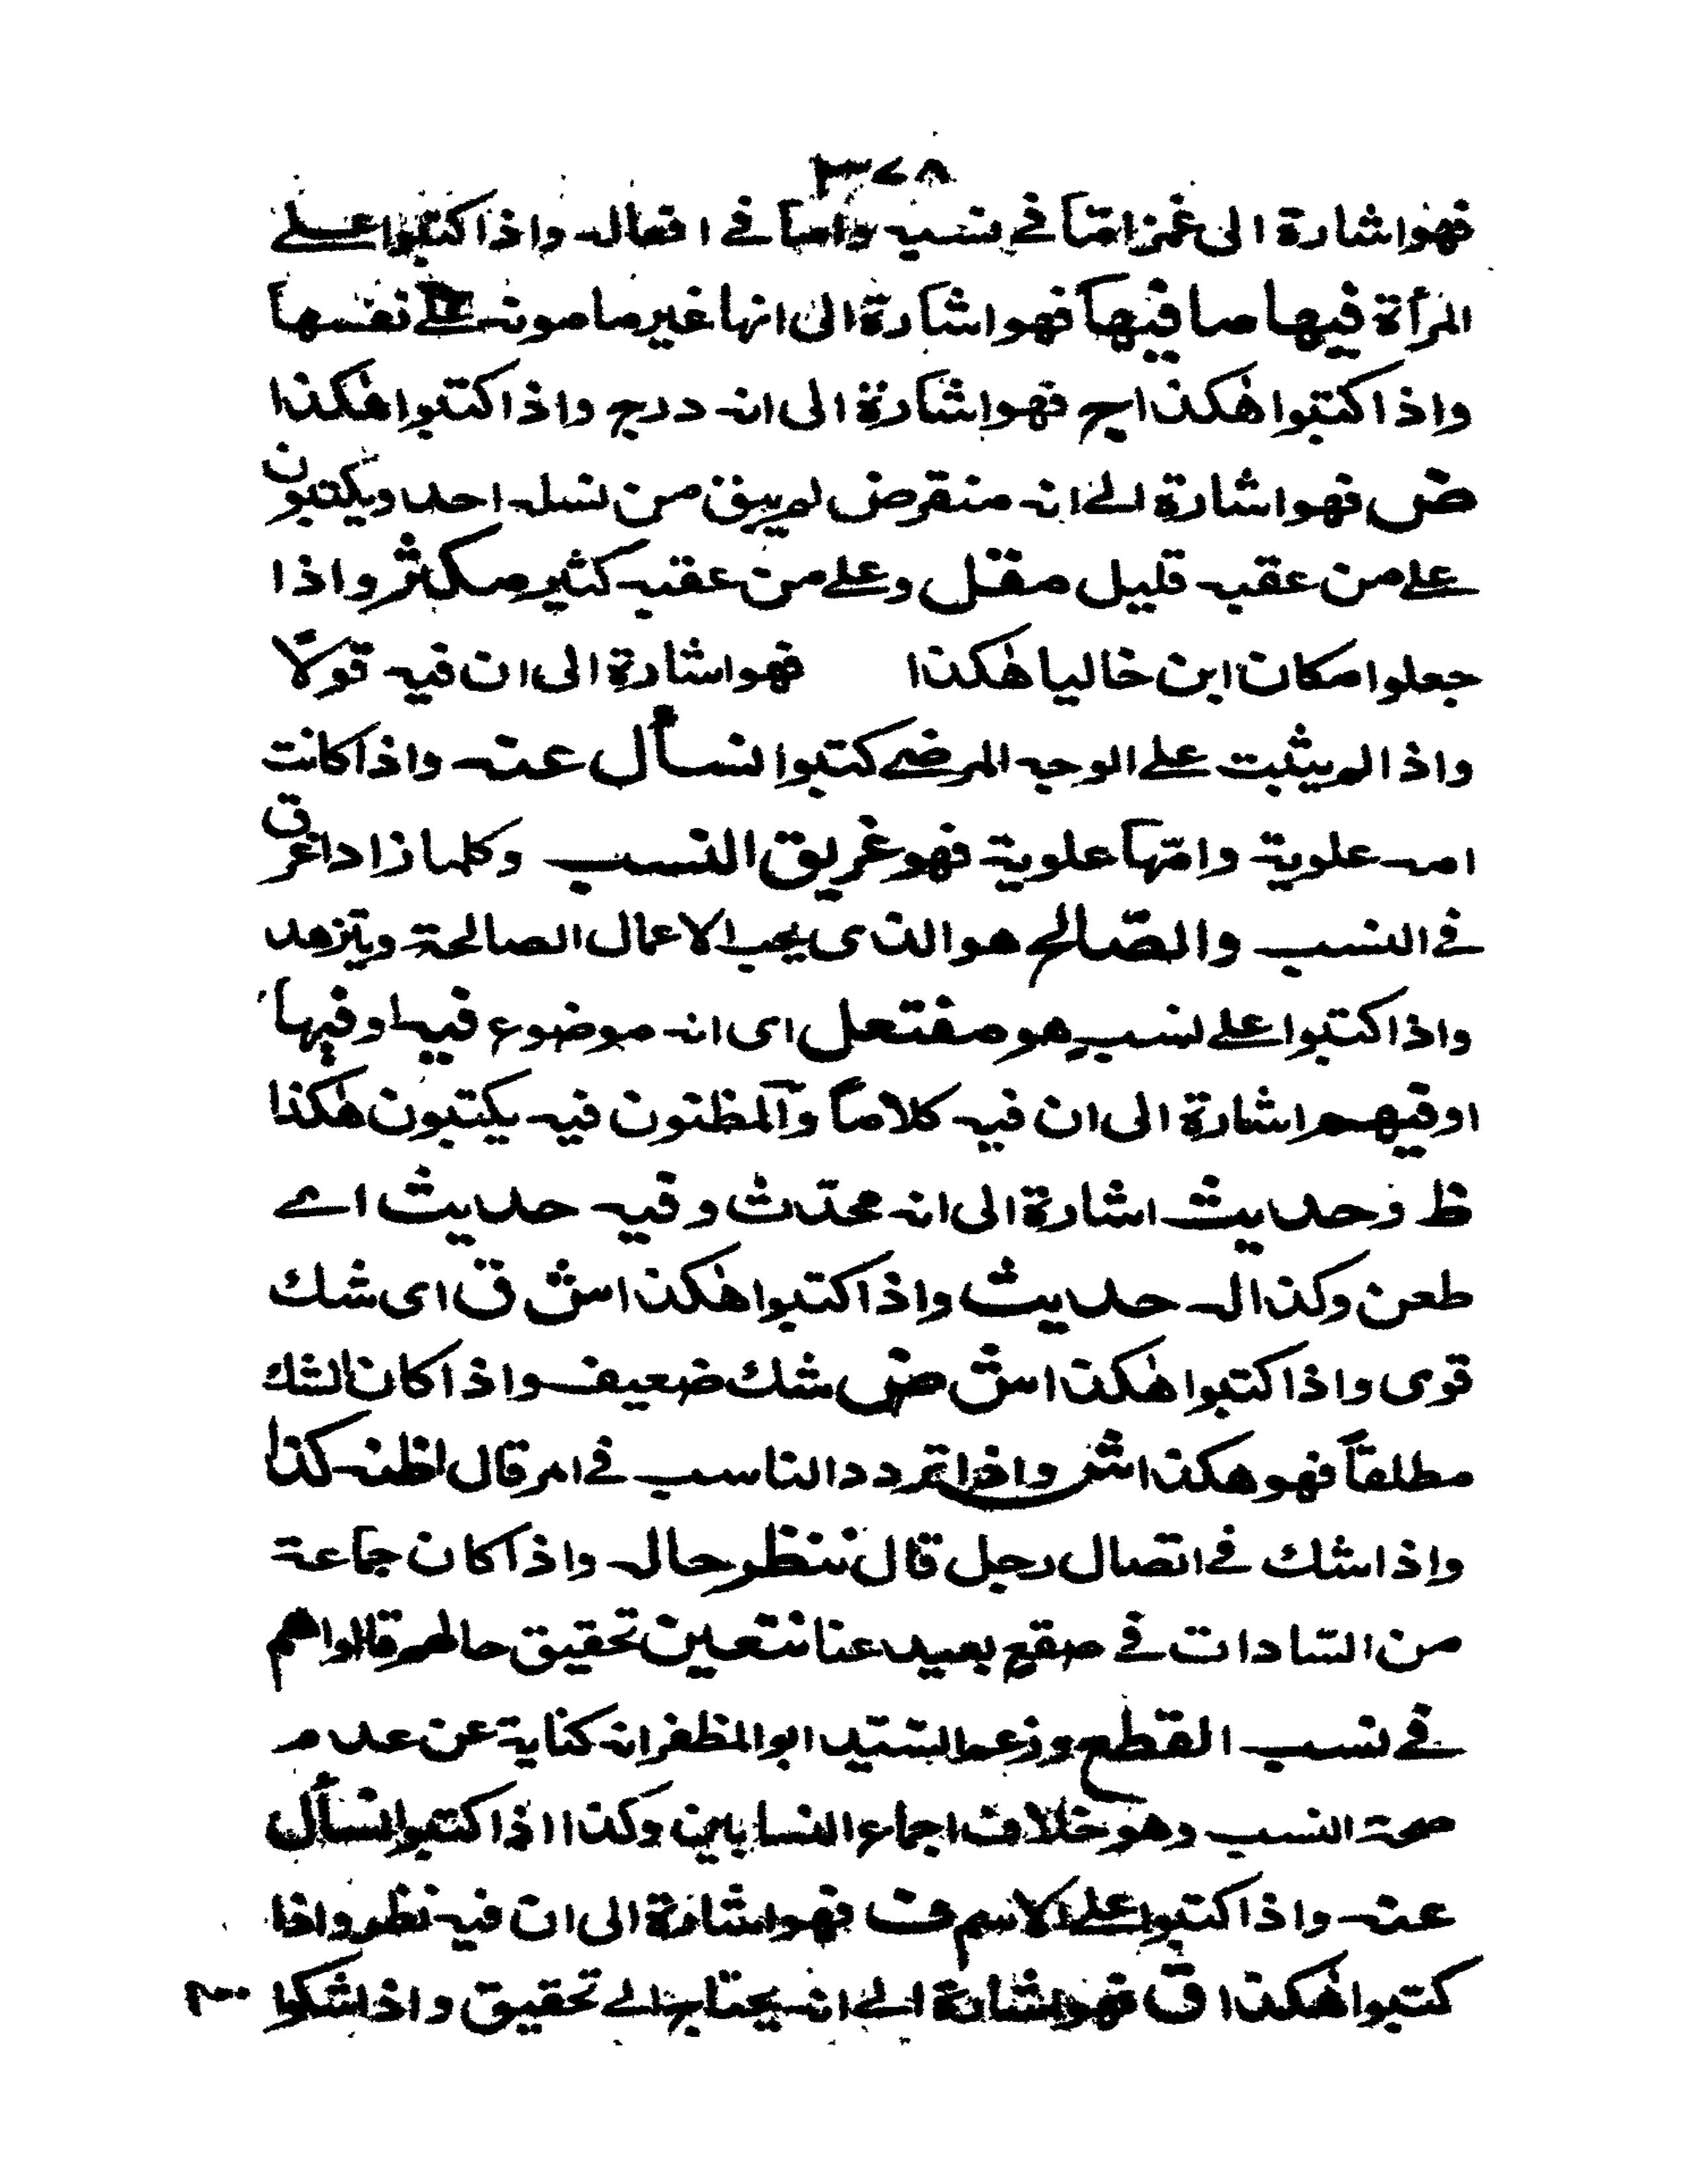 ٣٧٨
فهو اشارة الى غمز امّا في نسبه واما في افعاله واذا كتبوا على
المرأة فيها ما فيها فهو اشارة الى انها غير مامونه على نفسها
واذا كتبوا هٰكذا ج فهو اشارة الى انه درج واذا كتبوا هٰكذا
ض فهو اشارة الى انه منقرض لم يبق من نسله احد ويكتبون
على من عقبه قليل مقل وعلى من عقبه كثير مكثر واذا
جعلوا مكان ابن خاليا هٰكذا فهو اشارة الى ان فيه قولًا
واذا لم يثبت على الوجه المرضى كتبوا نسأل عنه واذا كانت
امه علوية وامّها علوية فهو غريق النسب وكلما زاد اغرق
في النسب والصّالح هو الذى يحب الاعمال الصالحة ويتزهد
واذا كتبوا على نسب هو مفتعل اى انه موضوع فيه او فيها
او فيهم اشارة الى ان فيه كلاماً والمظنون فيه يكتبون هٰكذا
ظ وحديث اشارة الى انه محدّث وفيه حديث اے
طعن وكذا له حديث واذا كتبوا هٰكذا ش ق اى شك
قوى واذا كتبوا هٰكذا ش ض شك ضعيف واذا كان الشك
مطلقاً فهو هكذا ش واذا تردد الناسب في امر قال اظنه كذا
واذا شك في اتصال رجل قال ننظر حاله واذا كان جماعة
من السّادات في صقع بعيد عنا نتعين تحقيق حالهم قالوا هم
في نسب القطع وزعم السّيّد ابو المظفر انه كناية عن عدم
صحة النسب وهو خلاف اجماع النسابين وكذا اذا كتبوا نسأل
عنه واذا كتبوا على الاسم ف فهو اشارة الى ان فيه نظر واذا
كتبوا هٰكذا ق فهو اشارة الى انه يحتاج الى تحقيق واذا شكوا